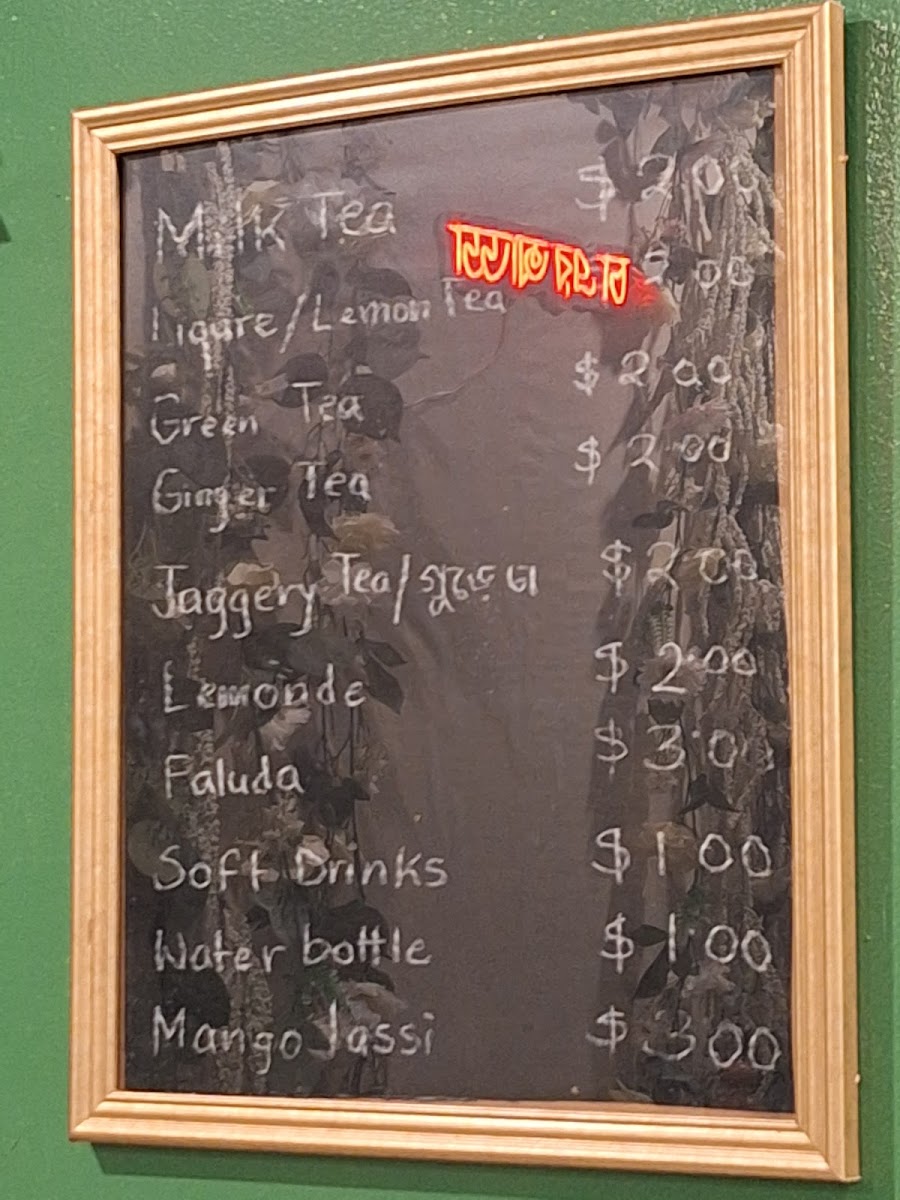 Milk Tea $2.00
Liqure/Lemon Tea 2.00
Green Tea $2.00
Ginger Tea $2.00
Jaggery Tea/গুড়ে চা $2.00
Lemonde $2.00
Faluda $3.0
Soft Drinks $1.00
Water bottle $1.00
Mango lassi $3.00